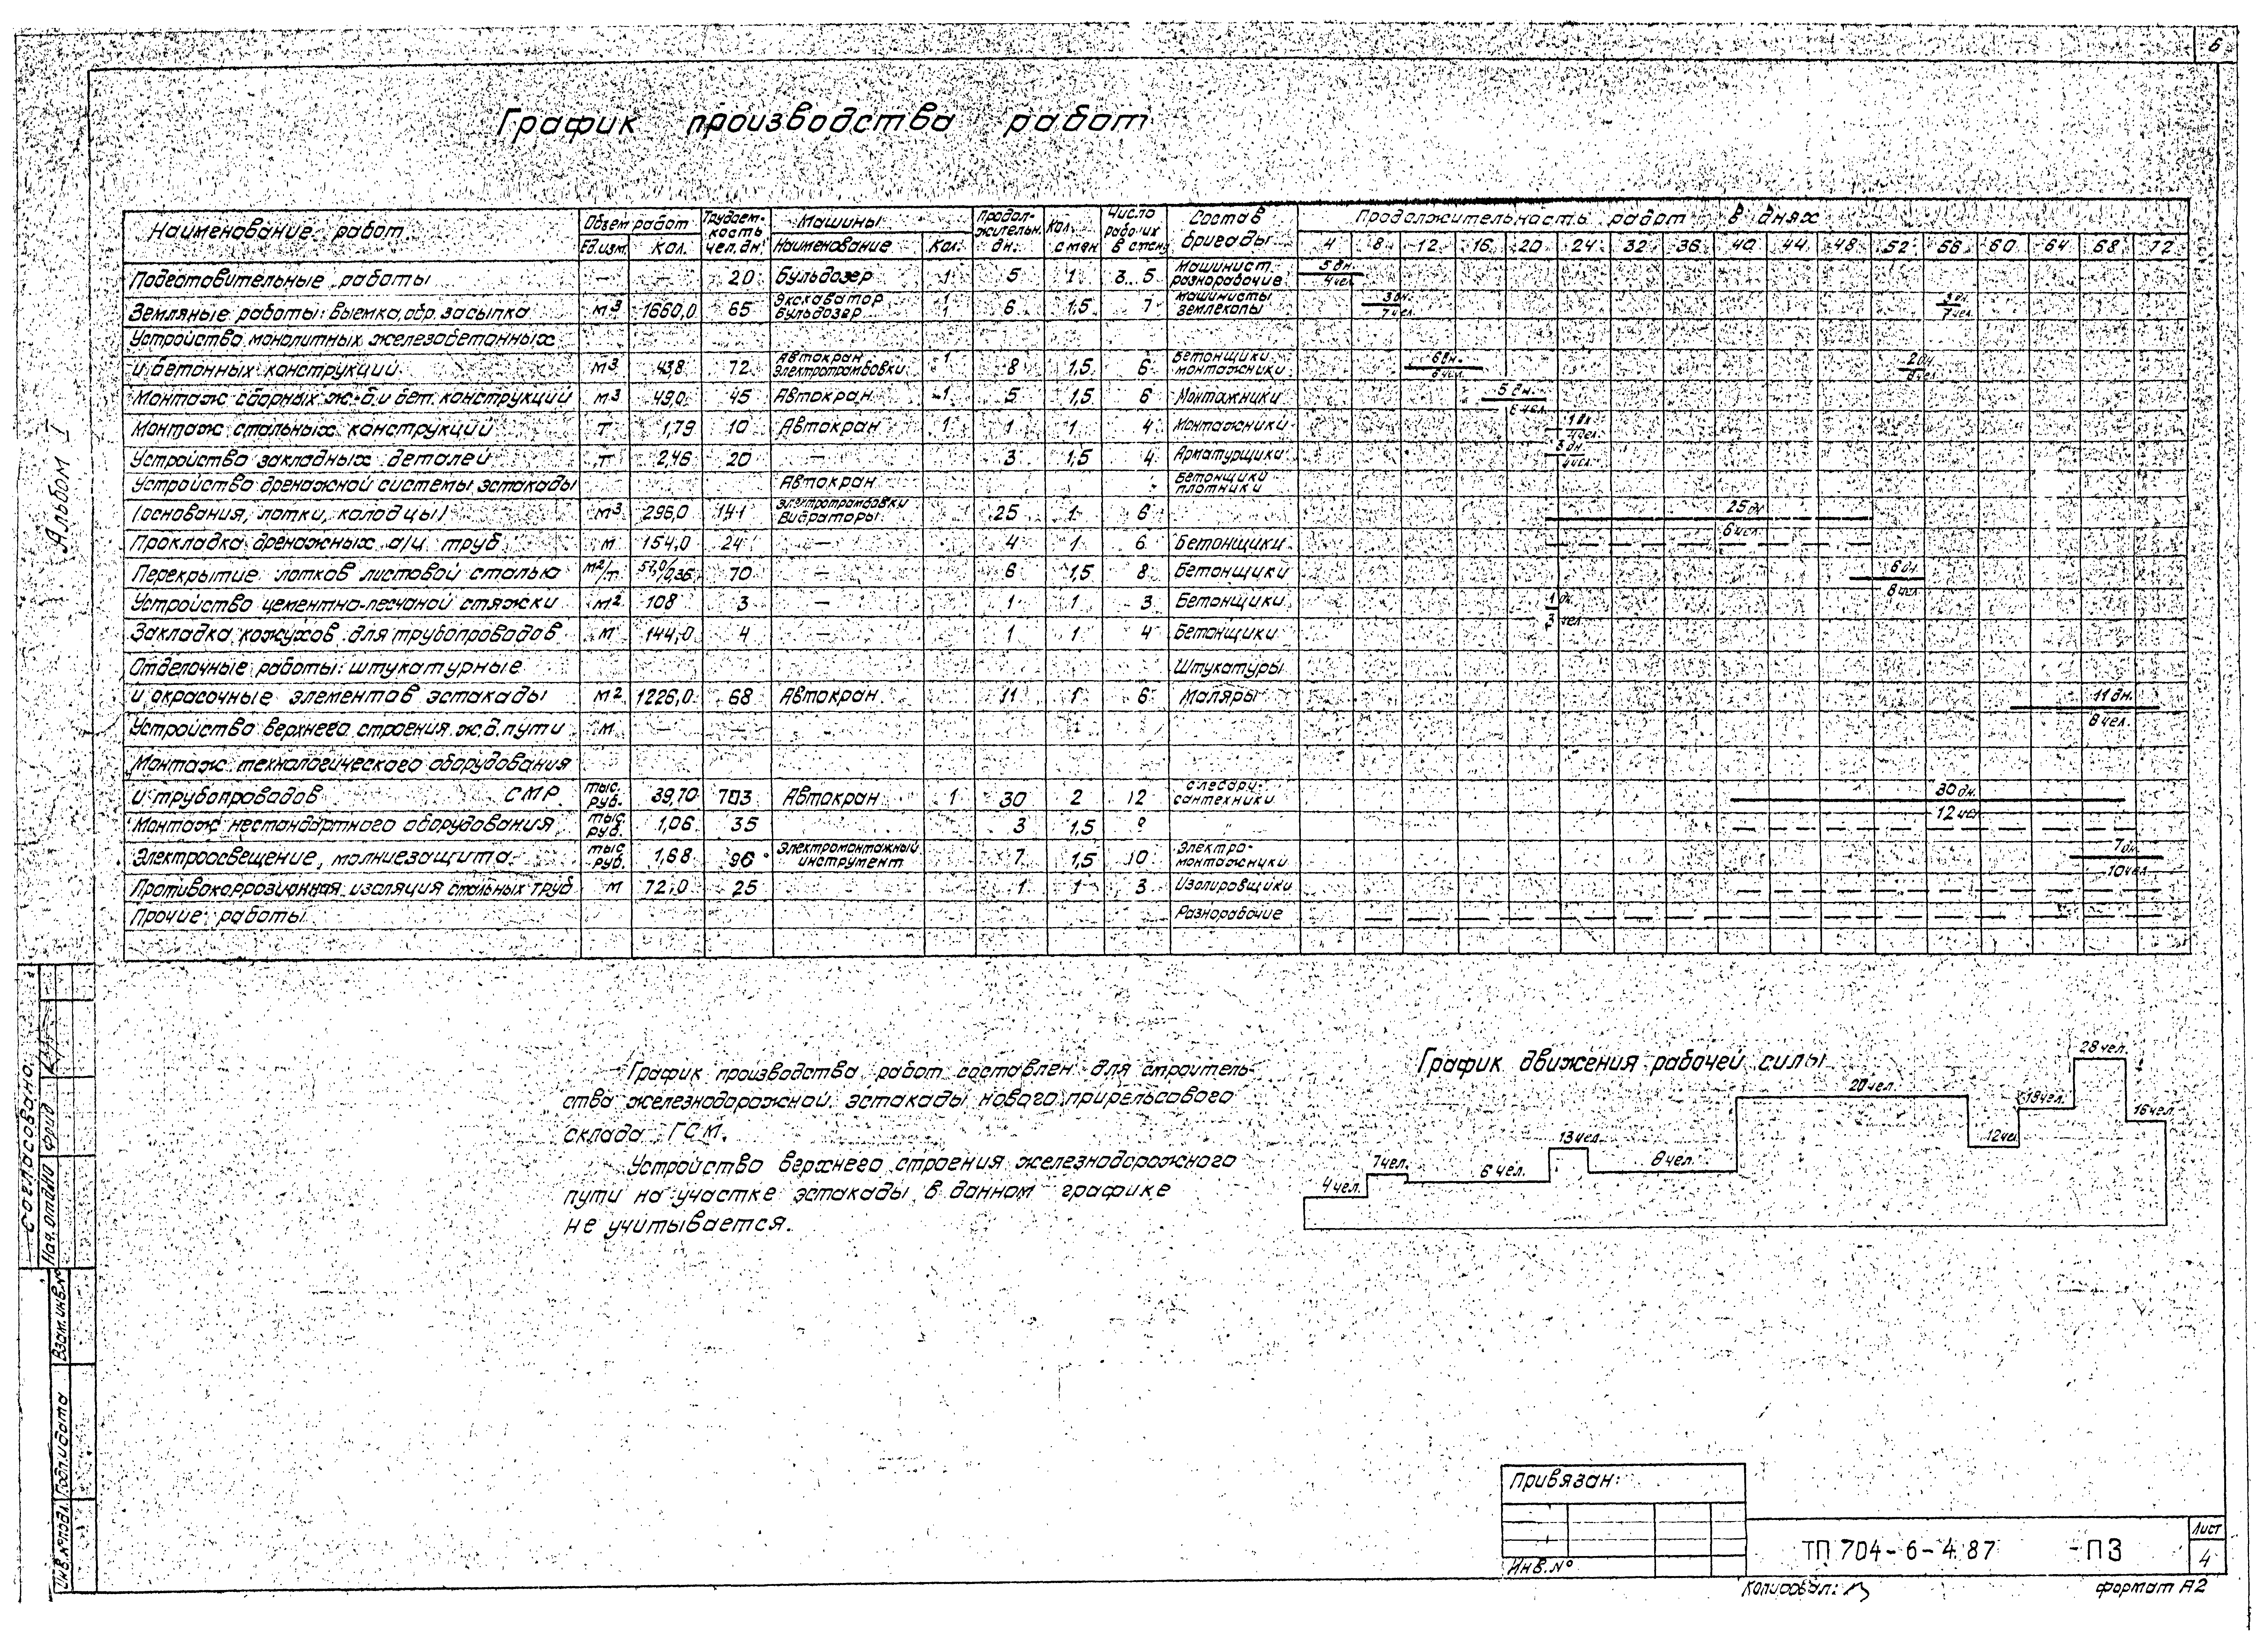 6
График производства работ
Наименование работ | Объем работ | Трудоем-кость чел.дн. | Машины | Продол-жительн. дн. | Кол. смен | Число рабочих в смену | Состав бригады | Продолжительность работ в днях
Ед.изм. | Кол. | Наименование | Кол. | 4 | 8 | 12 | 16 | 20 | 24 | 32 | 36 | 40 | 44 | 48 | 52 | 56 | 60 | 64 | 68 | 72
Подготовительные работы | — | — | 20 | Бульдозер | 1 | 5 | 1 | 3.. 5 | Машинист разнорабочие | 5 дн. 4 чел.
Земляные работы: выемка, обр. засыпка | м3 | 1660,0 | 65 | Экскаватор Бульдозер | 1 1 | 6 | 1,5 | 7 | Машинисты землекопы | 3 дн. 7 чел. | 3 дн. 7 чел.
Устройство монолитных железобетонных
и бетонных конструкций | м3 | 438 | 72 | Автокран Электротрамбовки | 1 | 8 | 1,5 | 6 | Бетонщики монтажники | 6 дн. 6 чел. | 2 дн. 8 чел.
Монтаж сборных ж-б. и бет. конструкций | м3 | 49,0 | 45 | Автокран | 1 | 5 | 1,5 | 6 | Монтажники | 5 дн. 6 чел.
Монтаж стальных конструкций | т | 1,79 | 10 | Автокран | 1 | 1 | 1 | 4 | Монтажники | 1 дн. 4 чел.
Устройство закладных деталей | т | 2,46 | 20 | — | 3 | 1,5 | 4 | Арматурщики | 3 дн. 4 чел.
Устройство дренажной системы эстакады | Автокран | Бетонщики плотники
(основания, лотки, колодцы) | м3 | 296,0 | 141 | Электротрамбовки Вибраторы | 25 | 1 | 6 | 25 дн. 6 чел.
Прокладка дренажных а/ц труб | м | 154,0 | 24 | — | 4 | 1 | 6 | Бетонщики
Перекрытие лотков листовой сталью | м2/т | 57,0/0,36 | 70 | — | 6 | 1,5 | 8 | Бетонщики | 6 дн. 8 чел.
Устройство цементно-песчаной стяжки | м2 | 108 | 3 | — | 1 | 1 | 3 | Бетонщики | 1 дн. 3 чел.
Закладка кожухов для трубопроводов | м | 144,0 | 4 | — | 1 | 1 | 4 | Бетонщики
Отделочные работы: штукатурные | Штукатуры
и окрасочные элементов эстакады | м2 | 1226,0 | 68 | Автокран | 11 | 1 | 6 | Маляры | 11 дн. 8 чел.
Устройство верхнего строения ж.д. пути | м | — | —
Монтаж технологического оборудования
и трубопроводов СМР | тыс. руб. | 39,70 | 703 | Автокран | 1 | 30 | 2 | 12 | слесари-сантехники | 30 дн. 12 чел.
Монтаж нестандартного оборудования | тыс. руб. | 1,06 | 35 | 3 | 1,5 | "
Электроосвещение, молниезащита | тыс. руб. | 1,68 | 96 | Электромонтажный инструмент | 7 | 1,5 | 10 | Электро-монтажники | 7 дн. 10 чел.
Противокоррозионная изоляция стальных труб | м | 72,0 | 25 | 1 | 1 | 3 | Изолировщики
Прочие работы | Разнорабочие
График производства работ составлен для строитель-
ства железнодорожной эстакады нового прирельсового
склада ГСМ.
Устройство верхнего строения железнодорожного
пути на участке эстакады в данном графике
не учитывается.
График движения рабочей силы
4 чел. 7 чел. 6 чел. 13 чел. 8 чел. 20 чел. 12 чел. 18 чел. 28 чел. 16 чел.
Альбом I
Согласовано:
Нач. отдНО Фрид
Взам.инв.№
Подп и дата
Инв.№ подл.
Привязан:
Инв.№
ТП 704-6-4.87 -ПЗ
Лист
4
Копировал:
формат А2